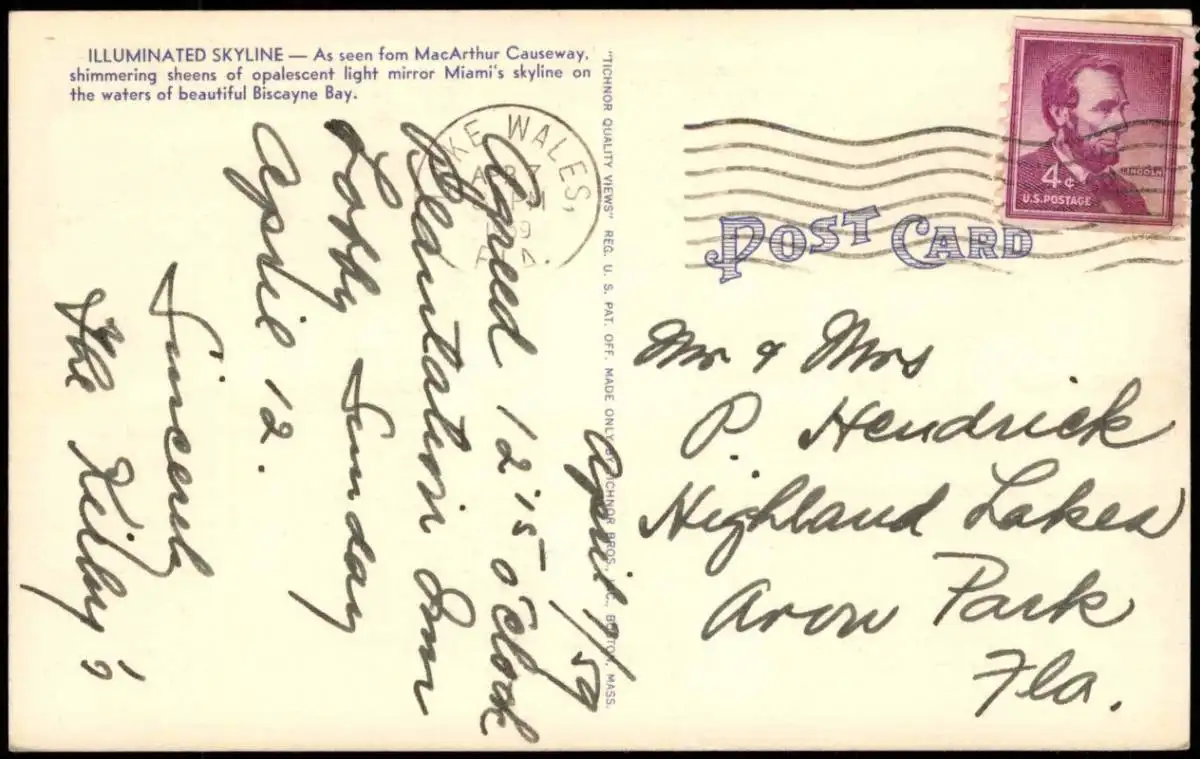 ILLUMINATED SKYLINE — As seen fom MacArthur Causeway,
shimmering sheens of opalescent light mirror Miami's skyline on
the waters of beautiful Biscayne Bay.
"TICHNOR QUALITY VIEWS" REG. U. S. PAT. OFF. MADE ONLY BY TICHNOR BROS., INC., BOSTON, MASS.
LAKE WALES,
POST CARD
4¢
LINCOLN
U.S. POSTAGE
April 7/59
Agreed 12'15 o'clock
Plantation Inn
Lobby Sunday
April 12.
Sincerely
The Kilby's
Mr & Mrs
P. Hendrick
Highland Lakes
Avon Park
Fla.